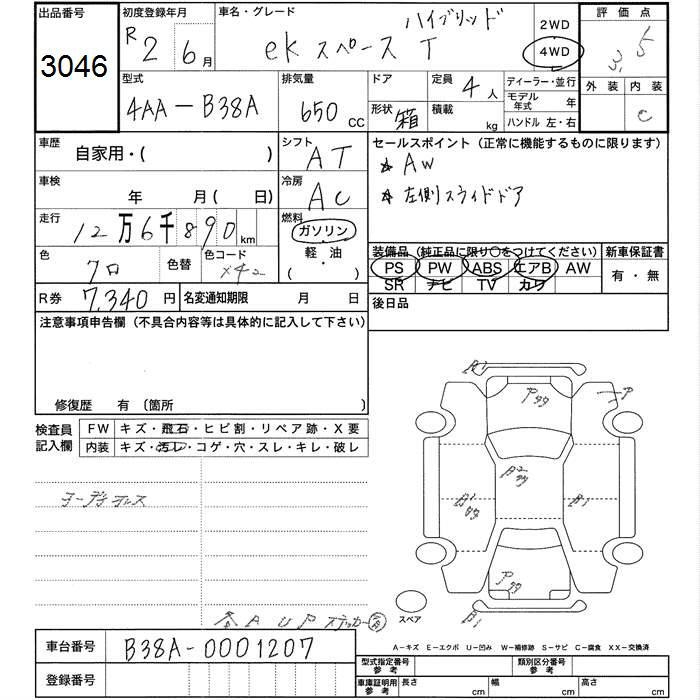 出品番号 初度登録年月 車名・グレード ハイブリッド 2WD 評価点
3046 R 2年 6月 eKスペース T 4WD 3.5
型式 排気量 ドア 定員 4人 ディーラー・並行 外装 内装
4AA-B38A 650 CC 形状 箱 積載 kg モデル年式 年 C
ハンドル 左・右
車歴 自家用・( ) シフト AT セールスポイント (正常に機能するものに限ります)
車検 年 月( 日) 冷房 AC ★AW
★左側スライドドア
走行 12万6千890km 燃料 ガソリン
軽・油
・( )
色 クロ 色替 色コード X42 装備品 (純正品に限り〇をつけてください) 新車保証書
PS PW ABS エアB AW 有・無
SR ナビ TV カワ
R券 7,340円 名変通知期限 月 日 後日品
注意事項申告欄 (不具合内容等は具体的に記入して下さい)
修復歴 有 〔箇所 〕
検査員記入欄 FW キズ・飛石・ヒビ割・リペア跡・X要
内装 キズ・汚レ・コゲ・穴・スレ・キレ・破レ
コーディオレス
各AUPステッカー
スペア
車台番号 B38A-0001207
登録番号
A-キズ E-エクボ U-凹み W-補修跡 S-サビ C-腐食 XX-交換済
型式指定番号 参考 類別区分番号 参考
車庫証明用 参考 長さ cm 幅 cm 高さ cm